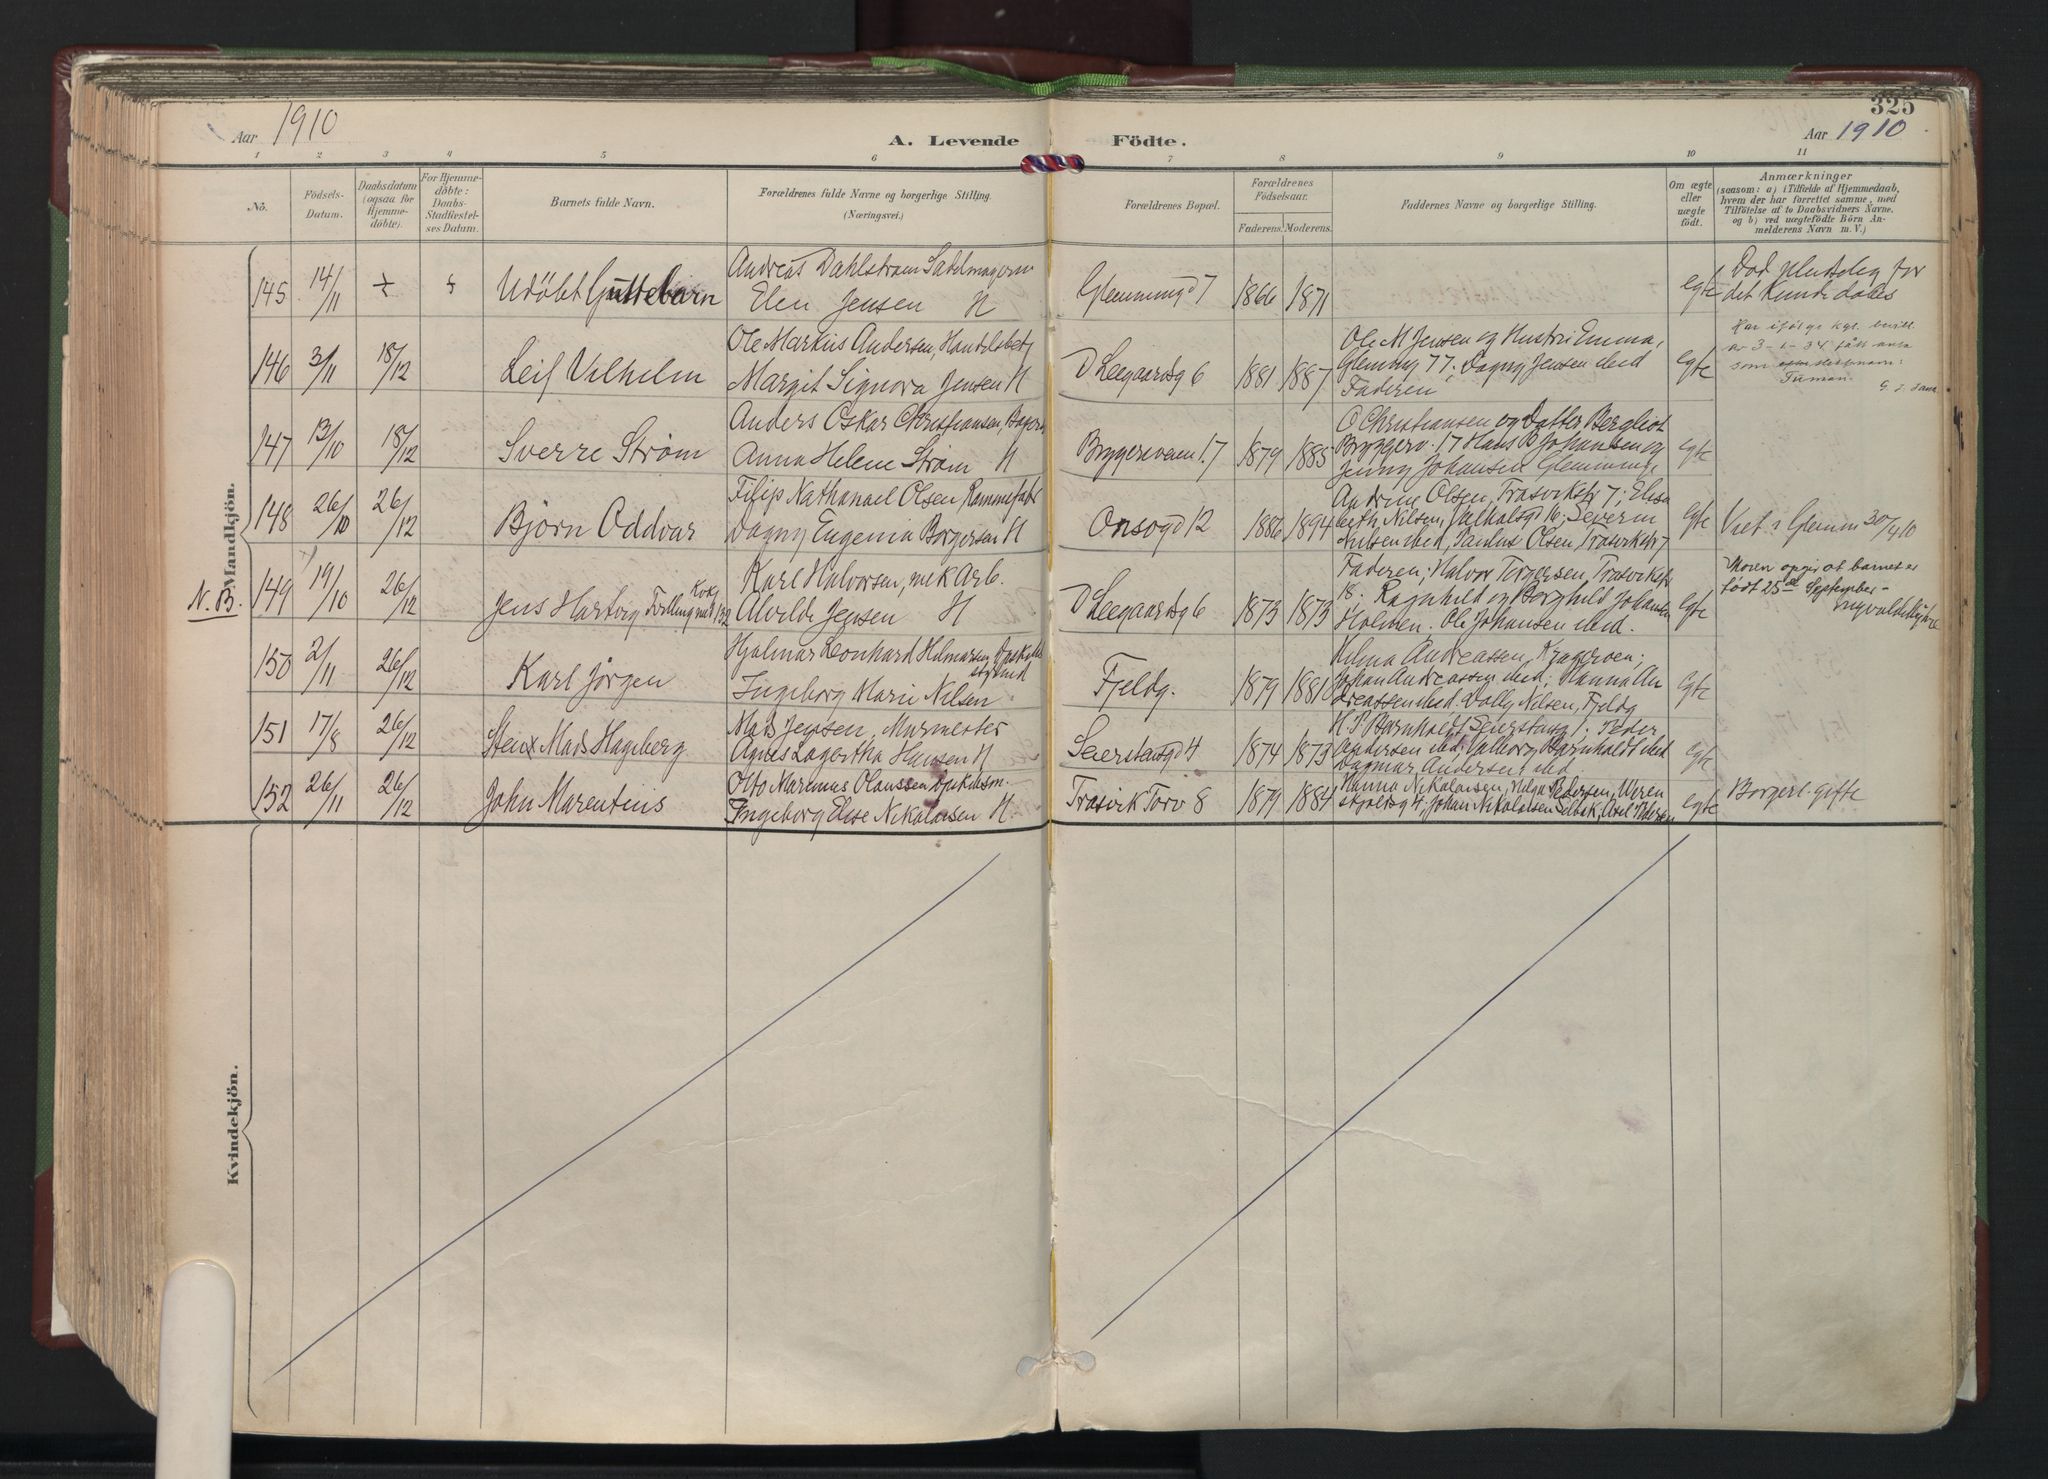 325
Aar 1910
A. Levende Födte.
Aar 1910
1 2 3 4 5 6 7 8 9 10 11
No.
Födsels-
Datum.
Daabsdatum
(ogsaa for
Hjemme-
döbte).
For Hjemme-
döbte:
Daabs-
Stadfæstel-
ses Datum.
Barnets fulde Navn.
Forældrenes fulde Navne og borgerlige Stilling.
(Næringsvei.)
Forældrenes Bopæl.
Forældrenes
Födselsaar.
Faderens. Moderens.
Faddernes Navne og borgerlige Stilling.
Om ægte
eller
uægte
födt.
Anmærkninger
(saasom: a) i Tilfælde af Hjemmedaab,
hvem der har forrettet samme, med
Tilföielse af to Daabsvidners Navne.
og b) ved uægtefödte Börn An-
melderens Navn m. V.)
Mandkjön.
145 14/11 Udöbt Guttebarn
Andreas Dahlstrøm Sadelmager
Elen Jensen H
Glemmingd 7 1866 1871 egte
Død pludselig før
det kunde døbes
146 3/11 18/12 Leif Vilhelm
Ole Markus Andersen, Handelsbet
Margit Signora Jensen H
D Leegaardsg 6 1881 1887
Ole M Jensen og Hustru Emma,
Glemmg 77; Dagny Jensen ibid
Faderen
egte
Har ifölge kgl. bevill.
av 3-1-34 fått anta
som slektsnavn:
147 13/10 18/12 Sverre Strøm
Anders Oskar Christiansen, Bager
Anna Helene Strøm H
Bryggeriveien 17 1879 1885
O Christiansen og Datter Bergliot
Bryggerv. 17 Hans B Johansen og
Jenny Johansen Glemming
egte
148 26/10 26/12 Bjørn Oddvar
Filip Nathanael Olsen, Rammefabr
Dagny Eugenia Borgersen H
Onsøgd 12 1886 1894
Andrine Olsen, Trosvikstr 7; Elisa
beth Nilsen, Valhalsgd 16; Severin
Nilsen ibid, Paulus Olsen, Trosvikstr 7
egte
Viet i Glemm 30/4 10
N.B. 149 19/10 26/12 Jens Hartvig
Karl Halvorsen, mek Arb.
Alvilde Jensen H
D Leegaardsg 6 1873 1873
Faderen; Halvor Torgersen, Trosvikstr
18. Ragnhild og Borghild Johansen
Holmen. Ole Johansen ibid.
egte
Moren opgir at barnet er
født 25de September
150 2/11 26/12 Karl Jörgen
Hjalmar Leonhard Hilmarsen
Ingeborg Marie Nilsen
Fjeldg. 1879 1881
Hilma Andreassen, Kragerøen;
Johan Andreassen ibid; Hanna An
dreassen ibid. Dolly Nilsen, Fjeldg
egte
151 17/8 26/12 Sten Mads Hageberg
Mads Jensen, Murmester
Agnes Lagertha Hansen H
Seierstensgd 4 1874 1873
H. P Barnholdt, Seierstensg 1. Peder
Andersen ibid; Valborg Barnholdt ibid
Dagmar Andersen ibid.
egte
152 26/11 26/12 John Marentius
Otto Marenius Olaussen
Ingeborg Elise Nikolaisen H.
Trosvik Torv 8 1879 1884
Hanna Nikolaisen, Helga Pedersen, Wiren
skjoldsg 4, Johan Nikolaisen Selbak, Axel Pedersen
egte
Borgerl. gifte
Kvindekjön.